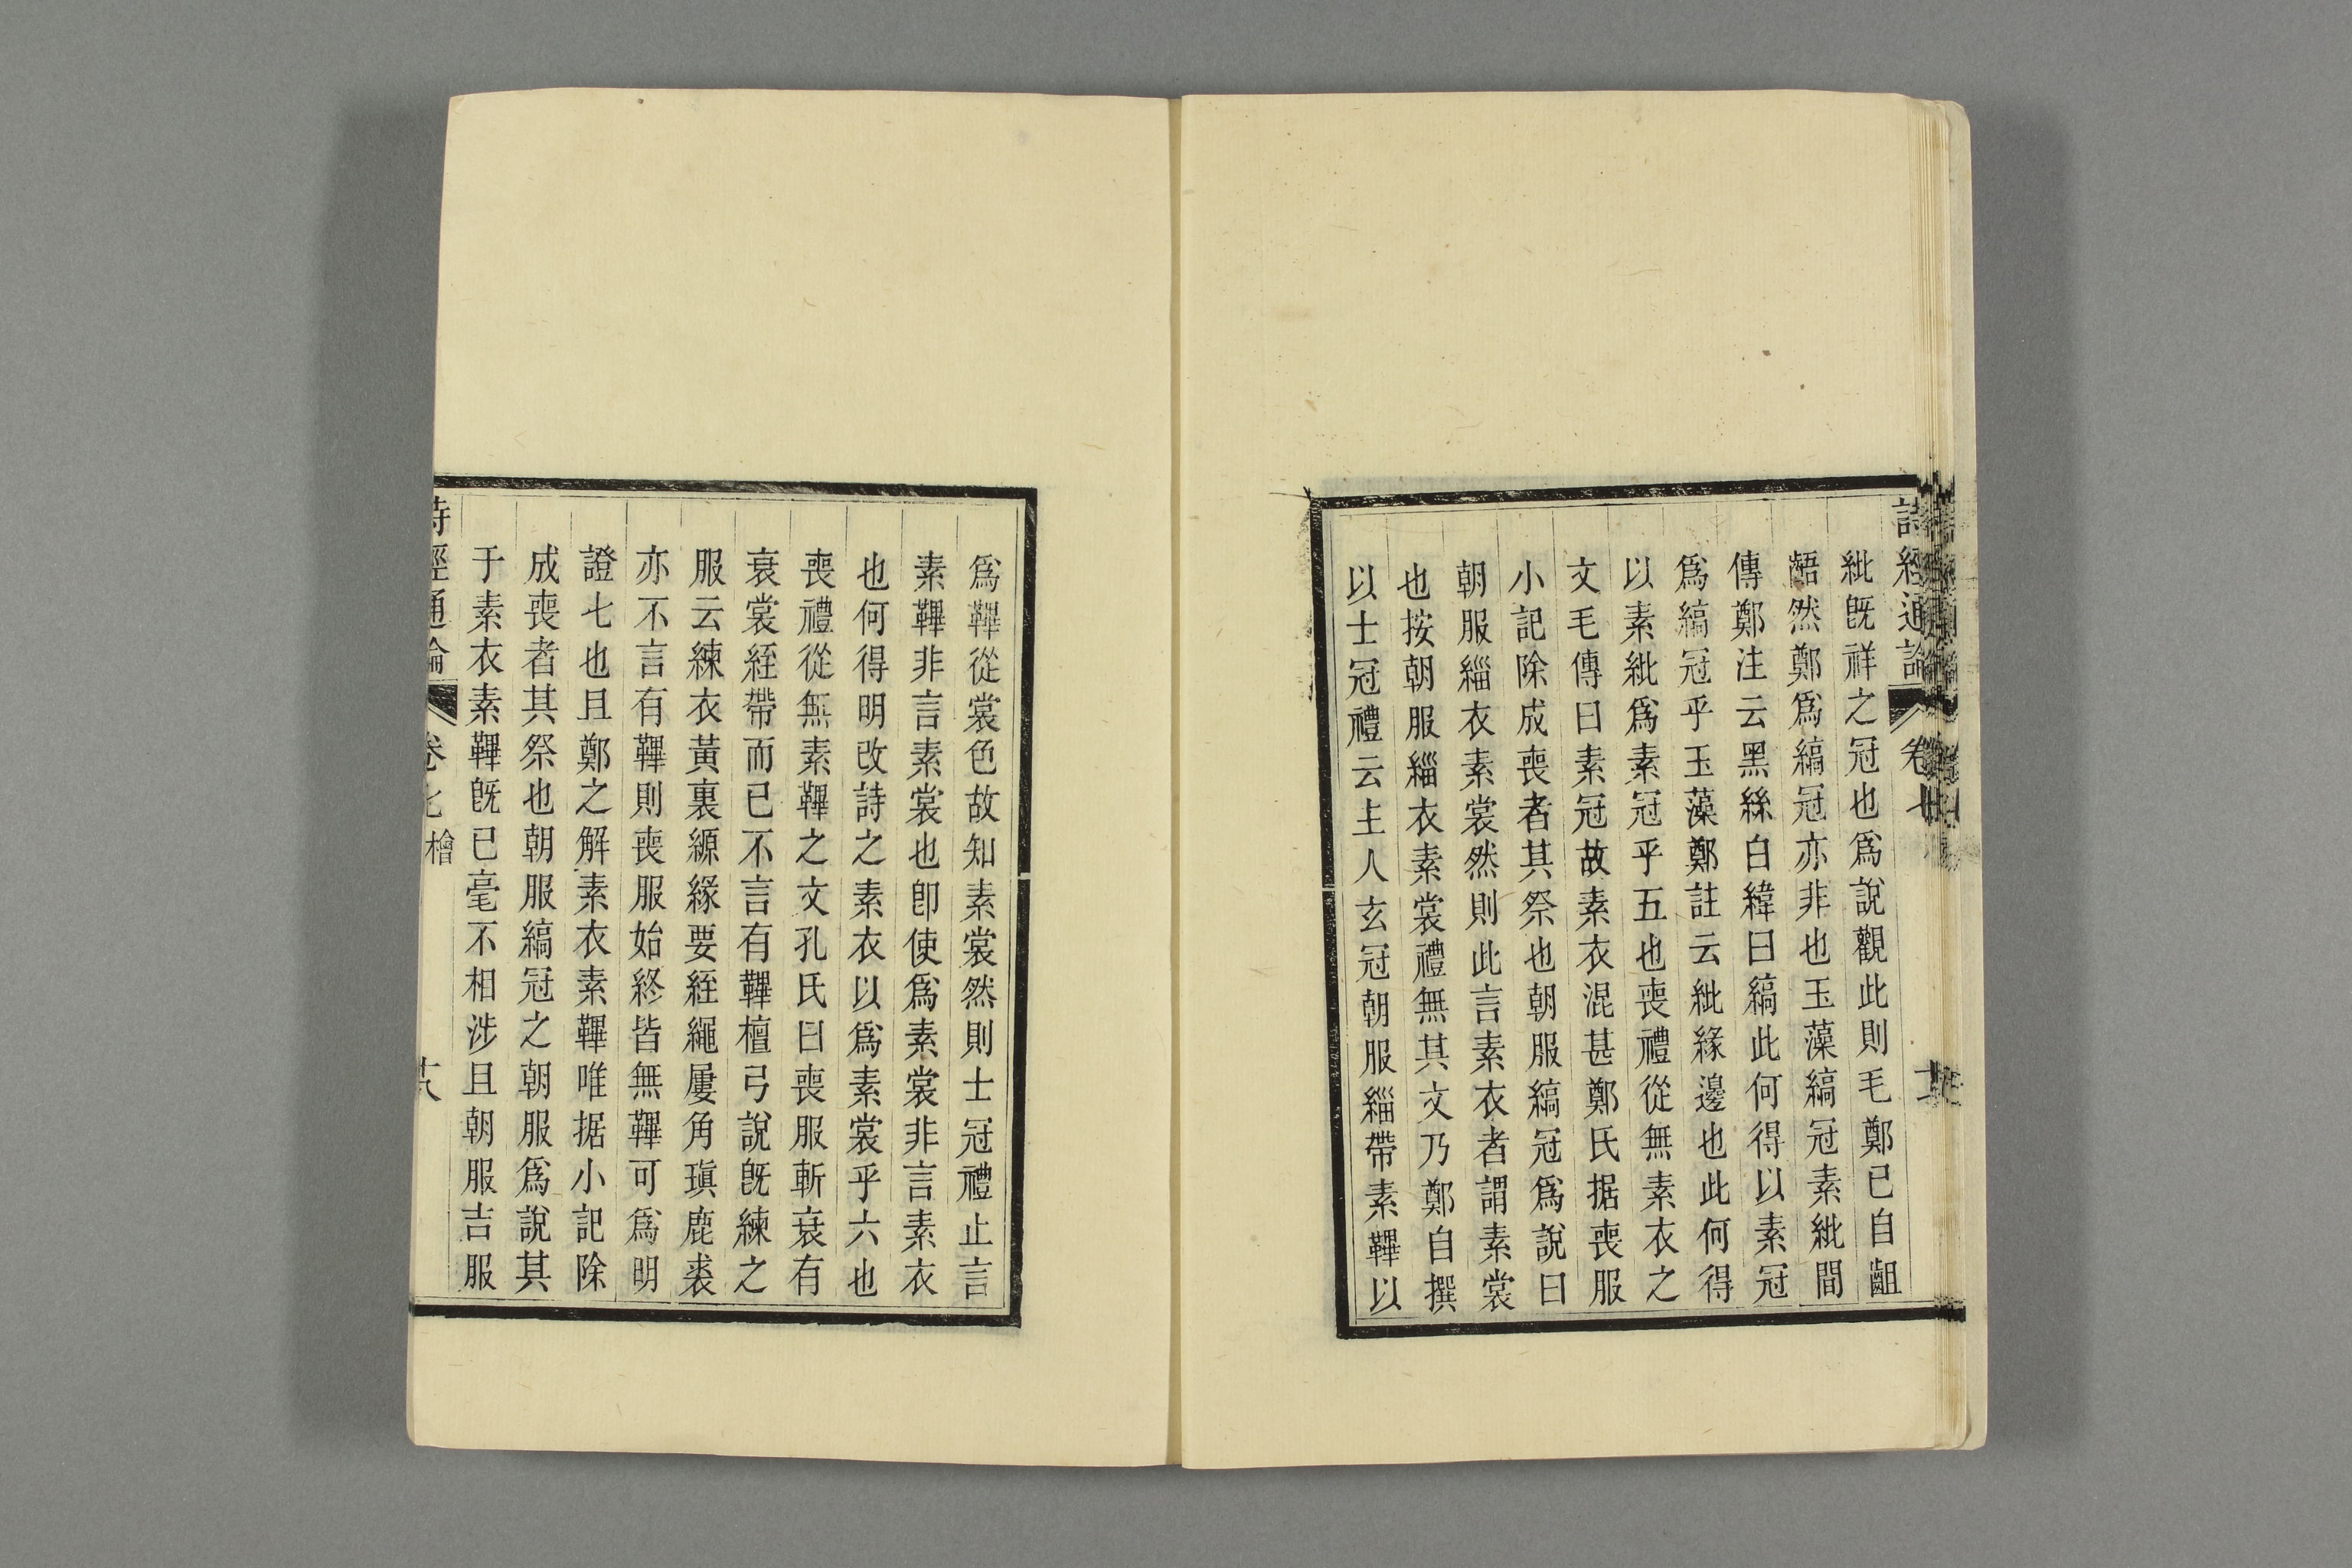 詩經通論 卷七
紕旣祥之冠也爲說觀此則毛鄭已自齟
齬然鄭爲縞冠亦非也玉藻縞冠素紕間
傳鄭注云黑絲白緯曰縞此何得以素冠
爲縞冠乎玉藻鄭註云紕緣邊也此何得
以素紕爲素冠乎五也喪禮從無素衣之
文毛傳曰素冠故素衣混甚鄭氏据喪服
小記除成喪者其祭也朝服縞冠爲說曰
朝服緇衣素裳然則此言素衣者謂素裳
也按朝服緇衣素裳禮無其文乃鄭自撰
以士冠禮云主人玄冠朝服緇帶素鞸以
爲鞸從裳色故知素裳然則士冠禮止言
素鞸非言素裳也卽使爲素裳非言素衣
也何得明改詩之素衣以爲素裳乎六也
喪禮從無素鞸之文孔氏曰喪服斬衰有
衰裳絰帶而已不言有鞸檀弓說旣練之
服云練衣黃裏縓緣要絰繩屨角瑱鹿裘
亦不言有鞸則喪服始終皆無鞸可爲明
證七也且鄭之解素衣素鞸唯据小記除
成喪者其祭也朝服縞冠之朝服爲說其
于素衣素鞸旣已毫不相涉且朝服吉服
詩經通論 卷七 檜